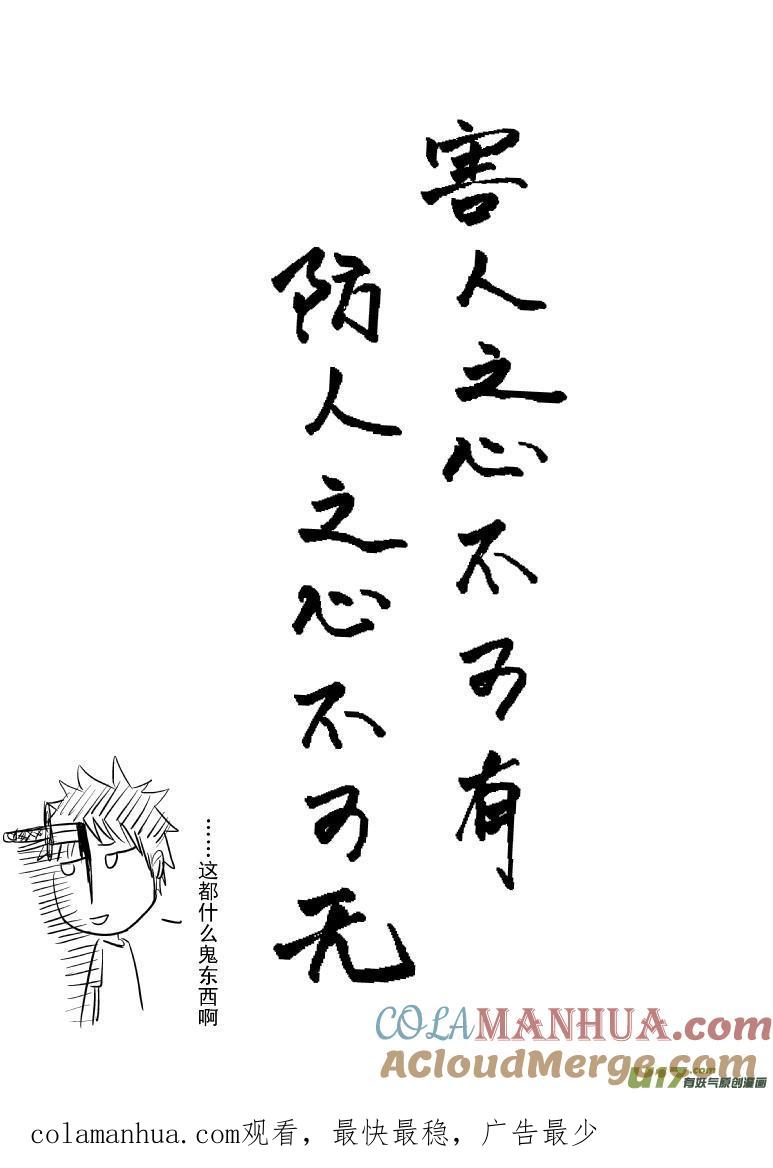 害人之心不可有
防人之心不可无
……这都什么鬼东西啊
COLAMANHUA.com
AcloudMerge.com
U17.com
有妖气原创漫画
colamanhua.com观看，最快最稳，广告最少